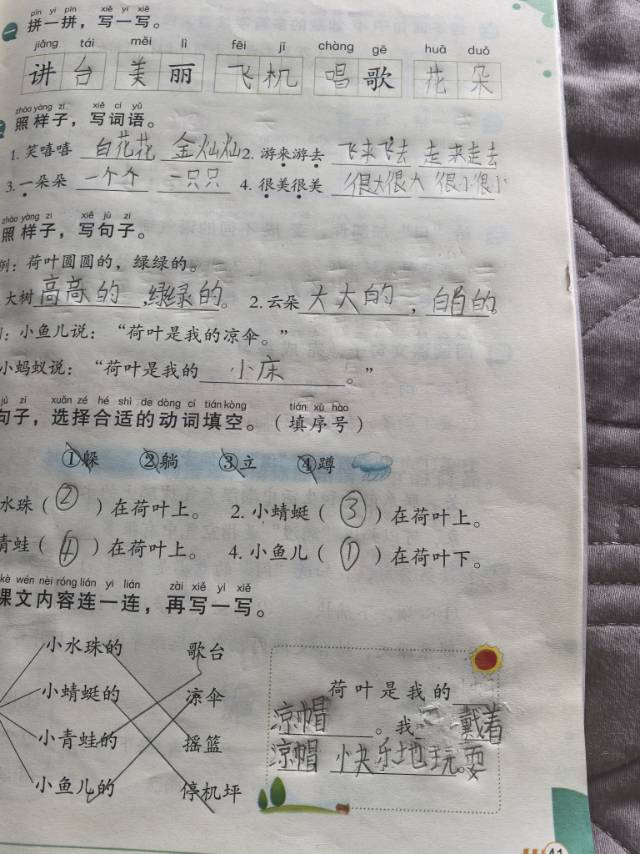 pīn yi pīn xiě yi xiě
一 拼一拼，写一写。
jiǎng tái měi lì fēi jī chàng gē huā duǒ
讲台 美丽 飞机 唱歌 花朵
zhào yàng zi xiě cí yǔ
照样子，写词语。
1. 笑嘻嘻 白花花 金灿灿 2. 游来游去 飞来飞去 走来走去
3. 一朵朵 一个个 一只只 4. 很美很美 很大很大 很小很小
zhào yàng zi xiě jù zi
照样子，写句子。
例：荷叶圆圆的，绿绿的。
大树高高的，绿绿的。 2. 云朵大大的，白白的
：小鱼儿说：“荷叶是我的凉伞。”
小蚂蚁说：“荷叶是我的小床。”
jù zi xuǎn zé hé shì de dòng cí tián kòng tián xù hào
句子，选择合适的动词填空。（填序号）
①躲 ②躺 ③立 ④蹲
水珠（②）在荷叶上。 2. 小蜻蜓（③）在荷叶上。
青蛙（④）在荷叶上。 4. 小鱼儿（①）在荷叶下。
kè wén nèi róng lián yi lián zài xiě yi xiě
课文内容连一连，再写一写。
小水珠的 歌台
小蜻蜓的 凉伞
小青蛙的 摇篮
小鱼儿的 停机坪
荷叶是我的
凉帽。我戴着
凉帽快乐地玩耍。
41